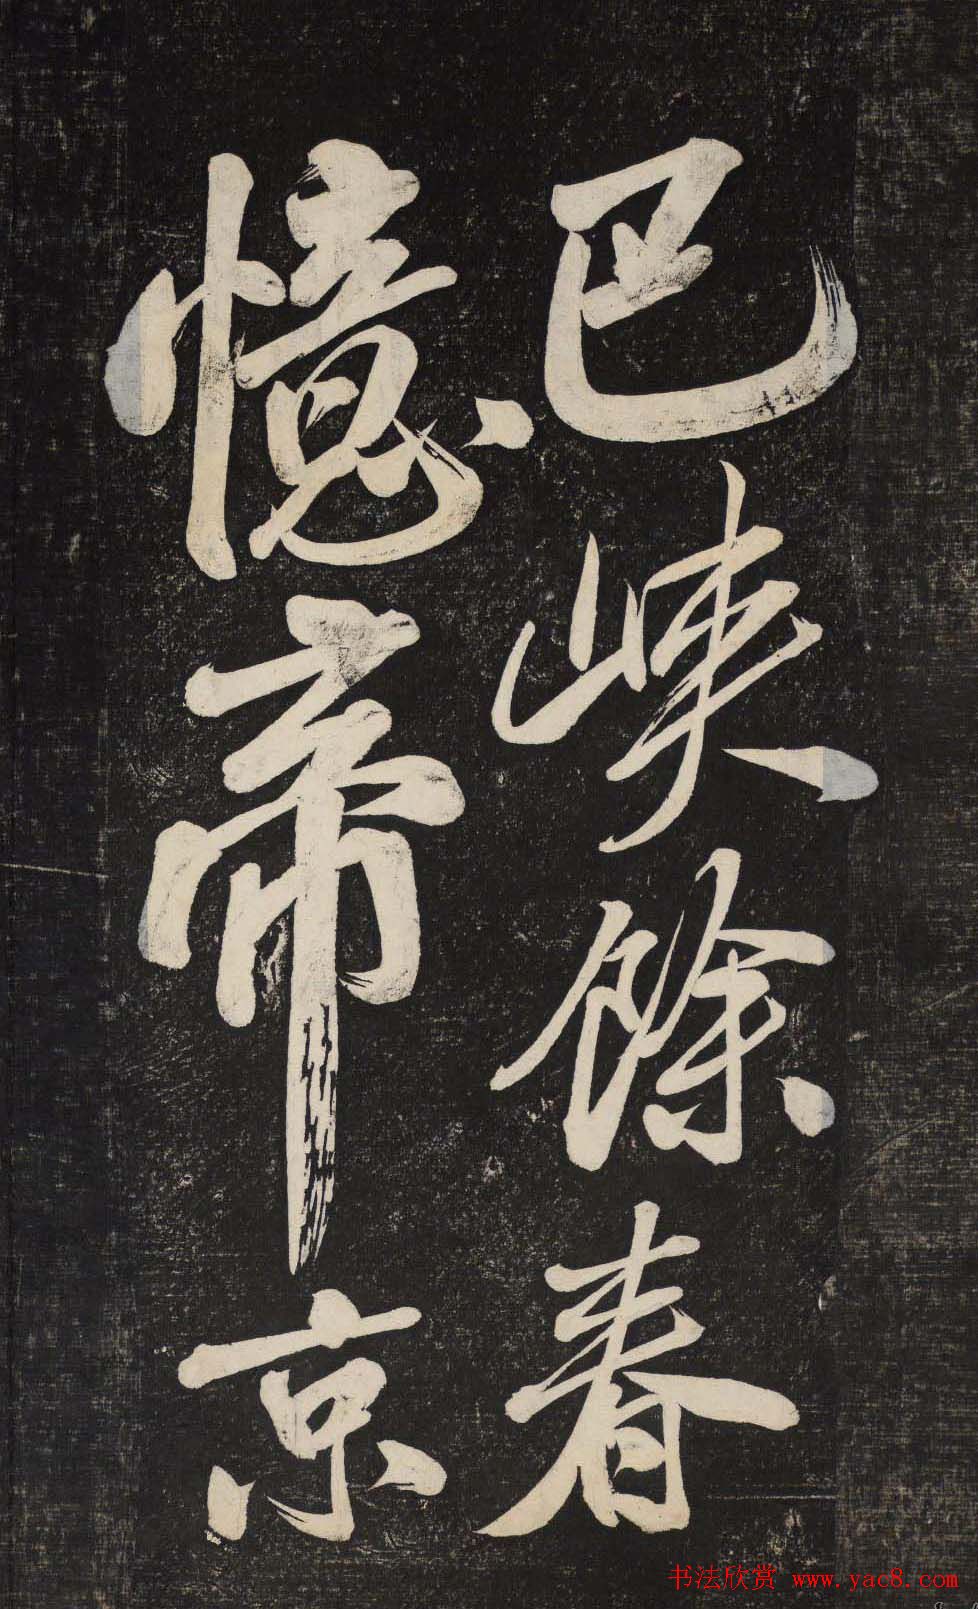 巴峽餘春
憶帝京
书法欣赏 www.yac8.com